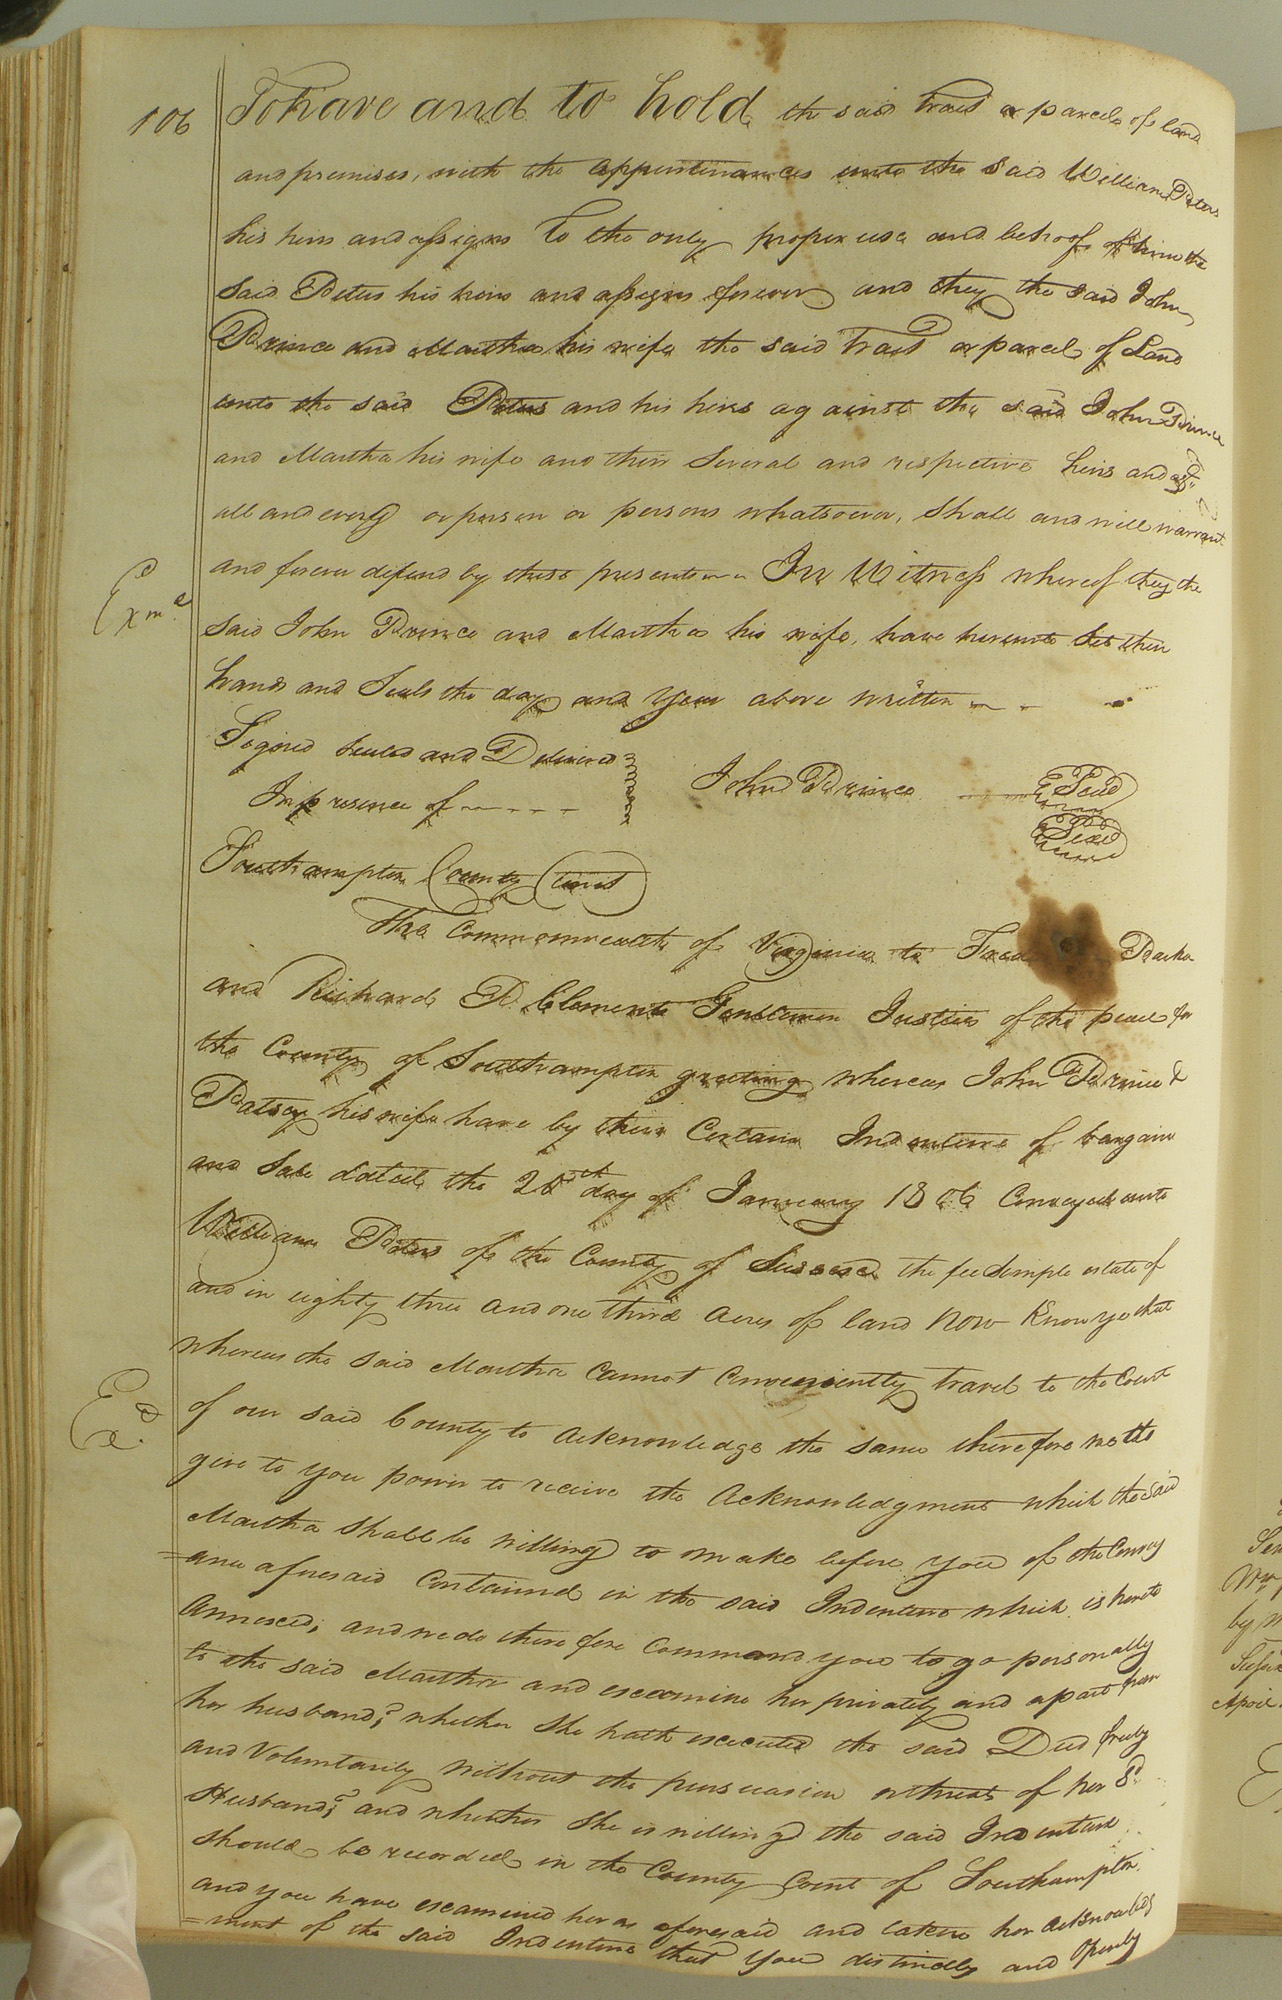 106
To have and to hold the said Tract or parcel of land
and premises, with the appurtenances unto the said William Peters
his heirs and assigns To the only proper use and behoof of him the
said Peters his heirs and assigns forever and they the said John
Prince and Martha his wife the said Tract or parcel of Land
unto the said Peters and his heirs against the said John Prince
and Martha his wife and their several and respective heirs and
all and every or person or persons whatsoever, shall and will warrant
and forever defend by these presents In Witness whereof they the
Exm.d
said John Prince and Martha his wife, have hereunto set their
hands and Seals the day and year above written
Signed sealed and Delivered
In presence of
John Prince Seal
Seal
Southampton County Court
The Commonwealth of Virginia to
and Richard P. Clements Gentlemen Justices of the peace for
the County of Southampton greeting whereas John Prince &
Patsey his wife have by their Certain Indenture of bargain
and Sale dated the 25th day of January 1806 Conveyed unto
William Peters of the County of Sussex the fee Simple estate of
and in eighty three and one third acres of land Now Know ye that
whereas the said Martha Cannot Conveniently travel to the Court
of our said County to acknowledge the same therefore we do
Ex.d
give to you power to receive the acknowledgment which the said
Martha shall be willing to make before you of the Convey
=ance aforesaid Contained in the said Indenture which is hereto
annexed; and we do therefore Command you to go personally
to the said Martha and examine her privately and apart from
her husband; whether she hath executed the said Deed freely
and Voluntarily without the persuasion or threats of her sd.
Husband; and whether she is willing the said Indenture
should be recorded in the County Court of Southampton.
and you have examined her as aforesaid and taken her acknowledg
=ment of the said Indenture that you distinctly and Openly